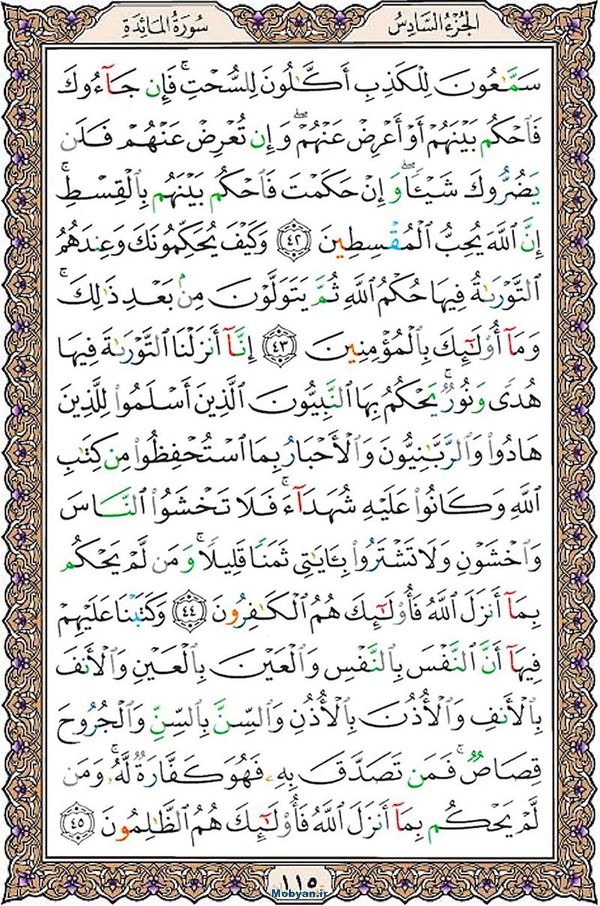 الجُزءُ السَّادِسُ
سُورَةُ المَائِدَةِ
سَمَّٰعُونَ لِلۡكَذِبِ أَكَّٰلُونَ لِلسُّحۡتِۚ فَإِن جَآءُوكَ
فَٱحۡكُم بَيۡنَهُمۡ أَوۡ أَعۡرِضۡ عَنۡهُمۡۖ وَإِن تُعۡرِضۡ عَنۡهُمۡ فَلَن
يَضُرُّوكَ شَيۡـٔٗاۖ وَإِنۡ حَكَمۡتَ فَٱحۡكُم بَيۡنَهُم بِٱلۡقِسۡطِۚ
إِنَّ ٱللَّهَ يُحِبُّ ٱلۡمُقۡسِطِينَ ٤٢ وَكَيۡفَ يُحَكِّمُونَكَ وَعِندَهُمُ
ٱلتَّوۡرَىٰةُ فِيهَا حُكۡمُ ٱللَّهِ ثُمَّ يَتَوَلَّوۡنَ مِنۢ بَعۡدِ ذَٰلِكَۚ
وَمَآ أُوْلَٰٓئِكَ بِٱلۡمُؤۡمِنِينَ ٤٣ إِنَّآ أَنزَلۡنَا ٱلتَّوۡرَىٰةَ فِيهَا
هُدٗى وَنُورٞۚ يَحۡكُمُ بِهَا ٱلنَّبِيُّونَ ٱلَّذِينَ أَسۡلَمُواْ لِلَّذِينَ
هَادُواْ وَٱلرَّبَّٰنِيُّونَ وَٱلۡأَحۡبَارُ بِمَا ٱسۡتُحۡفِظُواْ مِن كِتَٰبِ
ٱللَّهِ وَكَانُواْ عَلَيۡهِ شُهَدَآءَۚ فَلَا تَخۡشَوُاْ ٱلنَّاسَ
وَٱخۡشَوۡنِ وَلَا تَشۡتَرُواْ بِـَٔايَٰتِي ثَمَنٗا قَلِيلٗاۚ وَمَن لَّمۡ يَحۡكُم
بِمَآ أَنزَلَ ٱللَّهُ فَأُوْلَٰٓئِكَ هُمُ ٱلۡكَٰفِرُونَ ٤٤ وَكَتَبۡنَا عَلَيۡهِمۡ
فِيهَآ أَنَّ ٱلنَّفۡسَ بِٱلنَّفۡسِ وَٱلۡعَيۡنَ بِٱلۡعَيۡنِ وَٱلۡأَنفَ
بِٱلۡأَنفِ وَٱلۡأُذُنَ بِٱلۡأُذُنِ وَٱلسِّنَّ بِٱلسِّنِّ وَٱلۡجُرُوحَ
قِصَاصٞۚ فَمَن تَصَدَّقَ بِهِۦ فَهُوَ كَفَّارَةٞ لَّهُۥۚ وَمَن
لَّمۡ يَحۡكُم بِمَآ أَنزَلَ ٱللَّهُ فَأُوْلَٰٓئِكَ هُمُ ٱلظَّٰلِمُونَ ٤٥
١١٥
Mobyan.ir